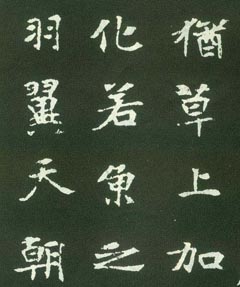 猶草上加
化若魚之
羽翼天朝